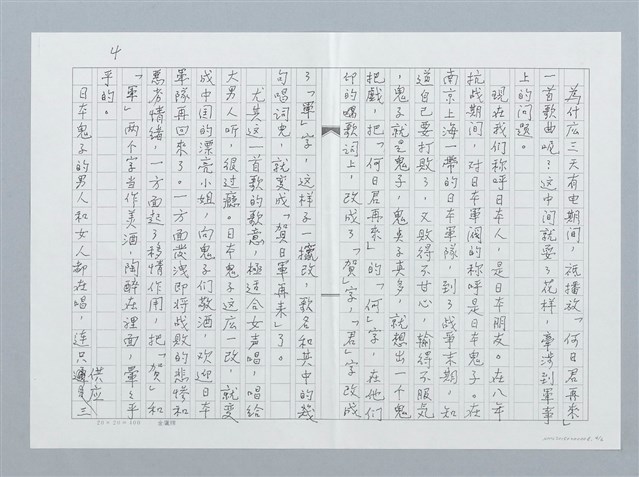 4
為什庅三天有电期间，祇播放「何日君再來」
一首歌曲呢？这中间就耍了花样，牽涉到軍事
上的问题。
現在我们称呼日本人，是日本朋友。在八年
抗战期间，对日本軍阀的称呼是日本鬼子。在
南京上海一帶的日本軍隊，到了战爭末期，知
道自己要打敗了，又敗得不甘心，输得不服気
，鬼子就是鬼子，鬼点子真多，就想出一个鬼
把戲，把「何日君再來」的「何」字，在他们
印的唱歌词上，改成了「賀」字，「君」字改成
了「軍」字，这样子一攥改，歌名和其中的幾
句唱词兒，就变成「賀日軍再来」了。
尤其这一首歌的歌意，極适合女声唱，唱给
大男人听，很过癮。日本鬼子这庅一改，就变
成中囯的漂亮小姐，向鬼子们敬酒，欢迎日本
軍隊再回來了。一方面发洩即将战敗的悲慘和
惡劣情绪，一方面起了移情作用，把「賀」和
「軍」两个字当作美酒，陶醉在裡面，暈乆乎
乎的。
日本鬼子的男人和女人都在唱，连只供应三
20×20=400
金鷹牌